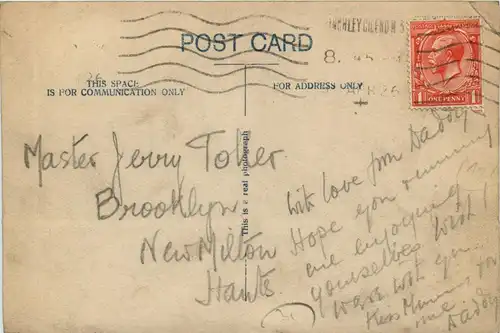 POST CARD
26
THIS SPACE
IS FOR COMMUNICATION ONLY
FOR ADDRESS ONLY
This is a real photograph
8.
26
1 ONE PENNY 1
Master Jerry Toher
Brooklyn
New Milton
Hants.
With love from Daddy
Hope you & mummy
are enjoying
yourselves Wish I
was with you
Kiss Mummy for
me.
Daddy